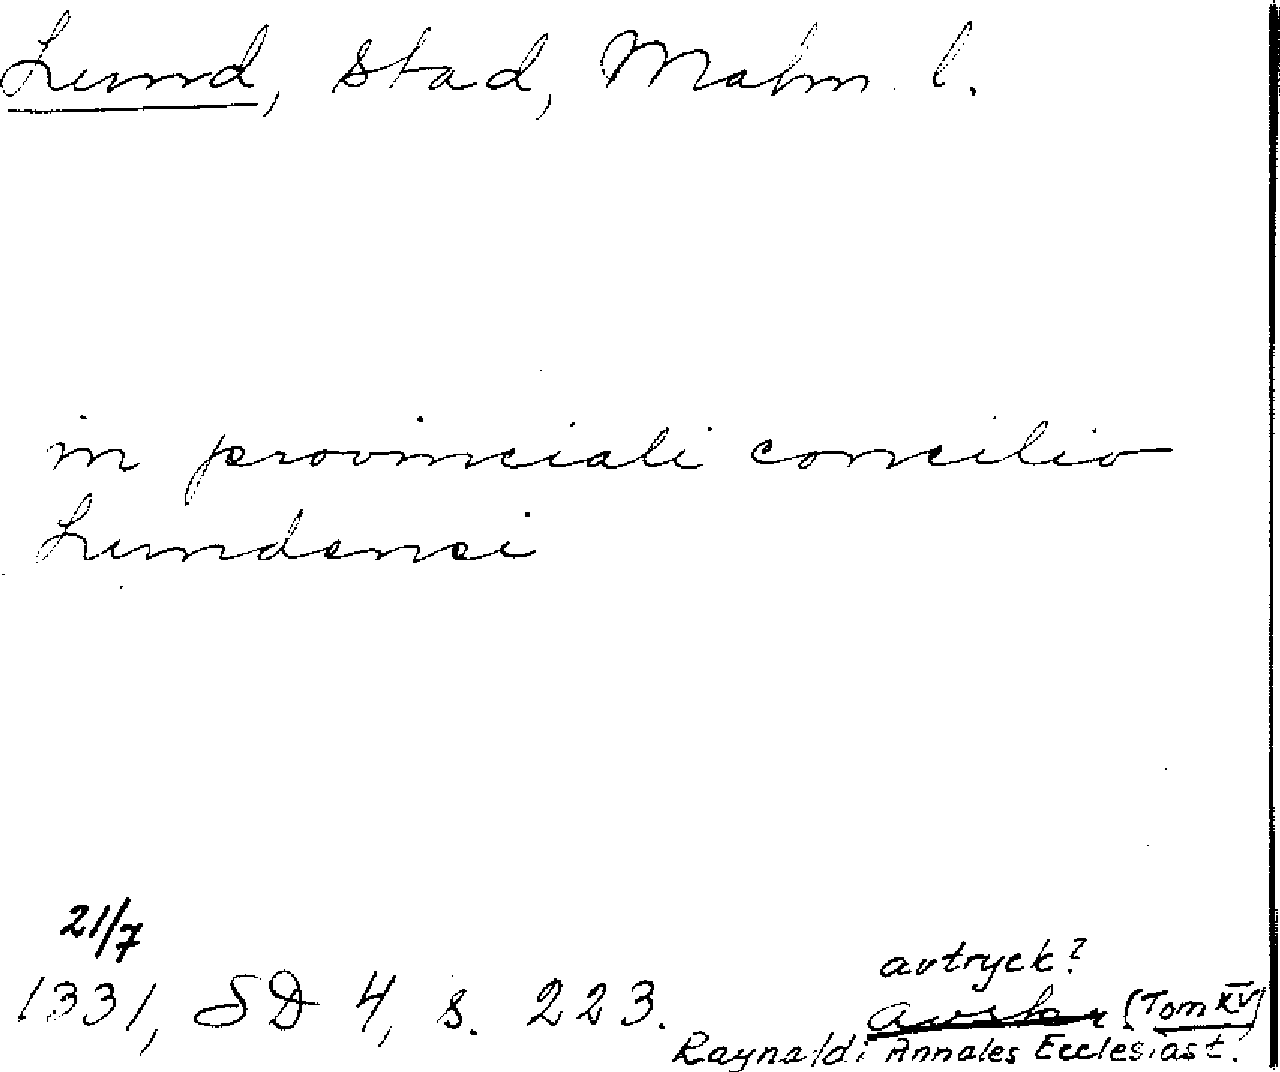 Lund, Stad, Malm. l.
in provinciali concilio
Lundensi
21/7
1331, SD 4, s. 223.
avtryck?
avskr (Tom XV)
Raynaldi Annales Ecclesiast.